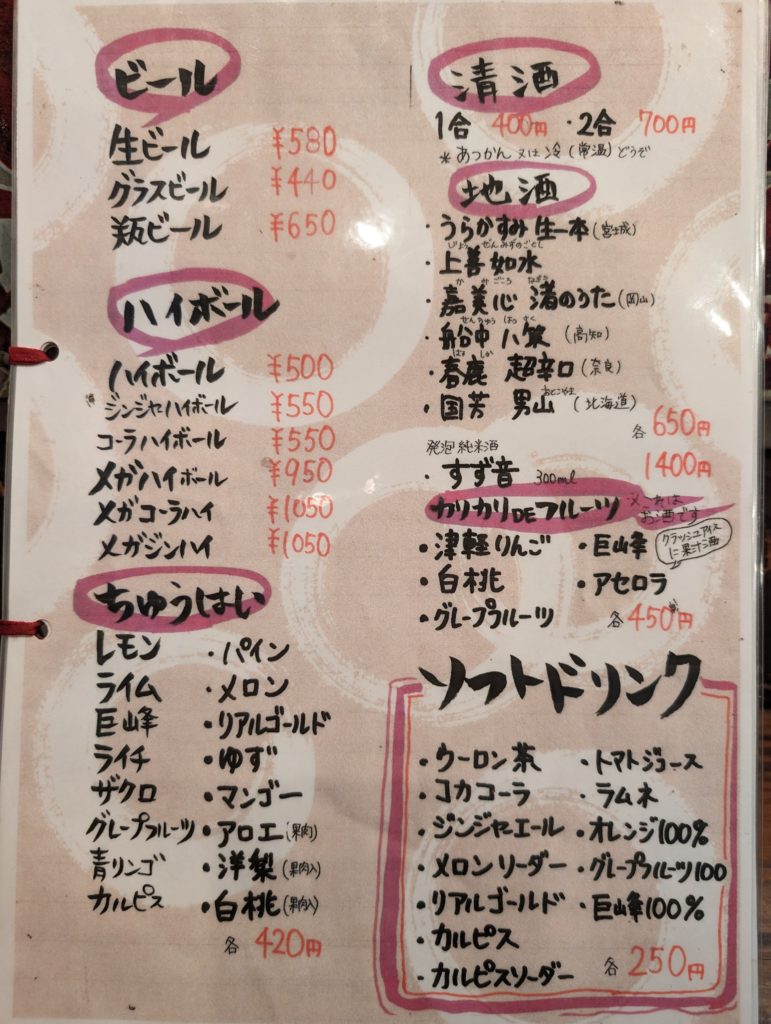 ビール
生ビール ¥580
グラスビール ¥440
瓶ビール ¥650
ハイボール
ハイボール ¥500
ジンジャハイボール ¥550
コーラハイボール ¥550
メガハイボール ¥950
メガコーラハイ ¥1050
メガジンハイ ¥1050
ちゅうはい
レモン ・パイン
ライム ・メロン
巨峰 ・リアルゴールド
ライチ ・ゆず
ザクロ ・マンゴー
グレープフルーツ ・アロエ(果肉)
青リンゴ ・洋梨(果肉入)
カルピス ・白桃(果肉入)
各 420円
清酒
1合 400円 ・2合 700円
*あつかん 又は 冷(常温)どうぞ
地酒
・うらかすみ 生一本(宮城)
じょう ぜんみずのごとし
・上善如水
か み ごころ なぎさ
・嘉美心 渚のうた(岡山)
せんちゅう はっ さく
・船中八策(高知)
はる しか
・春鹿 超辛口(奈良)
おとこやま
・国芳 男山(北海道)
各 650円
発泡純米酒
・すず音 300ml 1400円
カリカリDEフルーツ ※これは
お酒です
クラッシュアイス
に果汁酒
・津軽りんご ・巨峰
・白桃 ・アセロラ
・グレープフルーツ 各 450円
ソフトドリンク
・ウーロン茶 ・トマトジュース
・コカコーラ ・ラムネ
・ジンジャーエール ・オレンジ100%
・メロンソーダー ・グレープフルーツ100
・リアルゴールド ・巨峰100%
・カルピス
・カルピスソーダー 各 250円